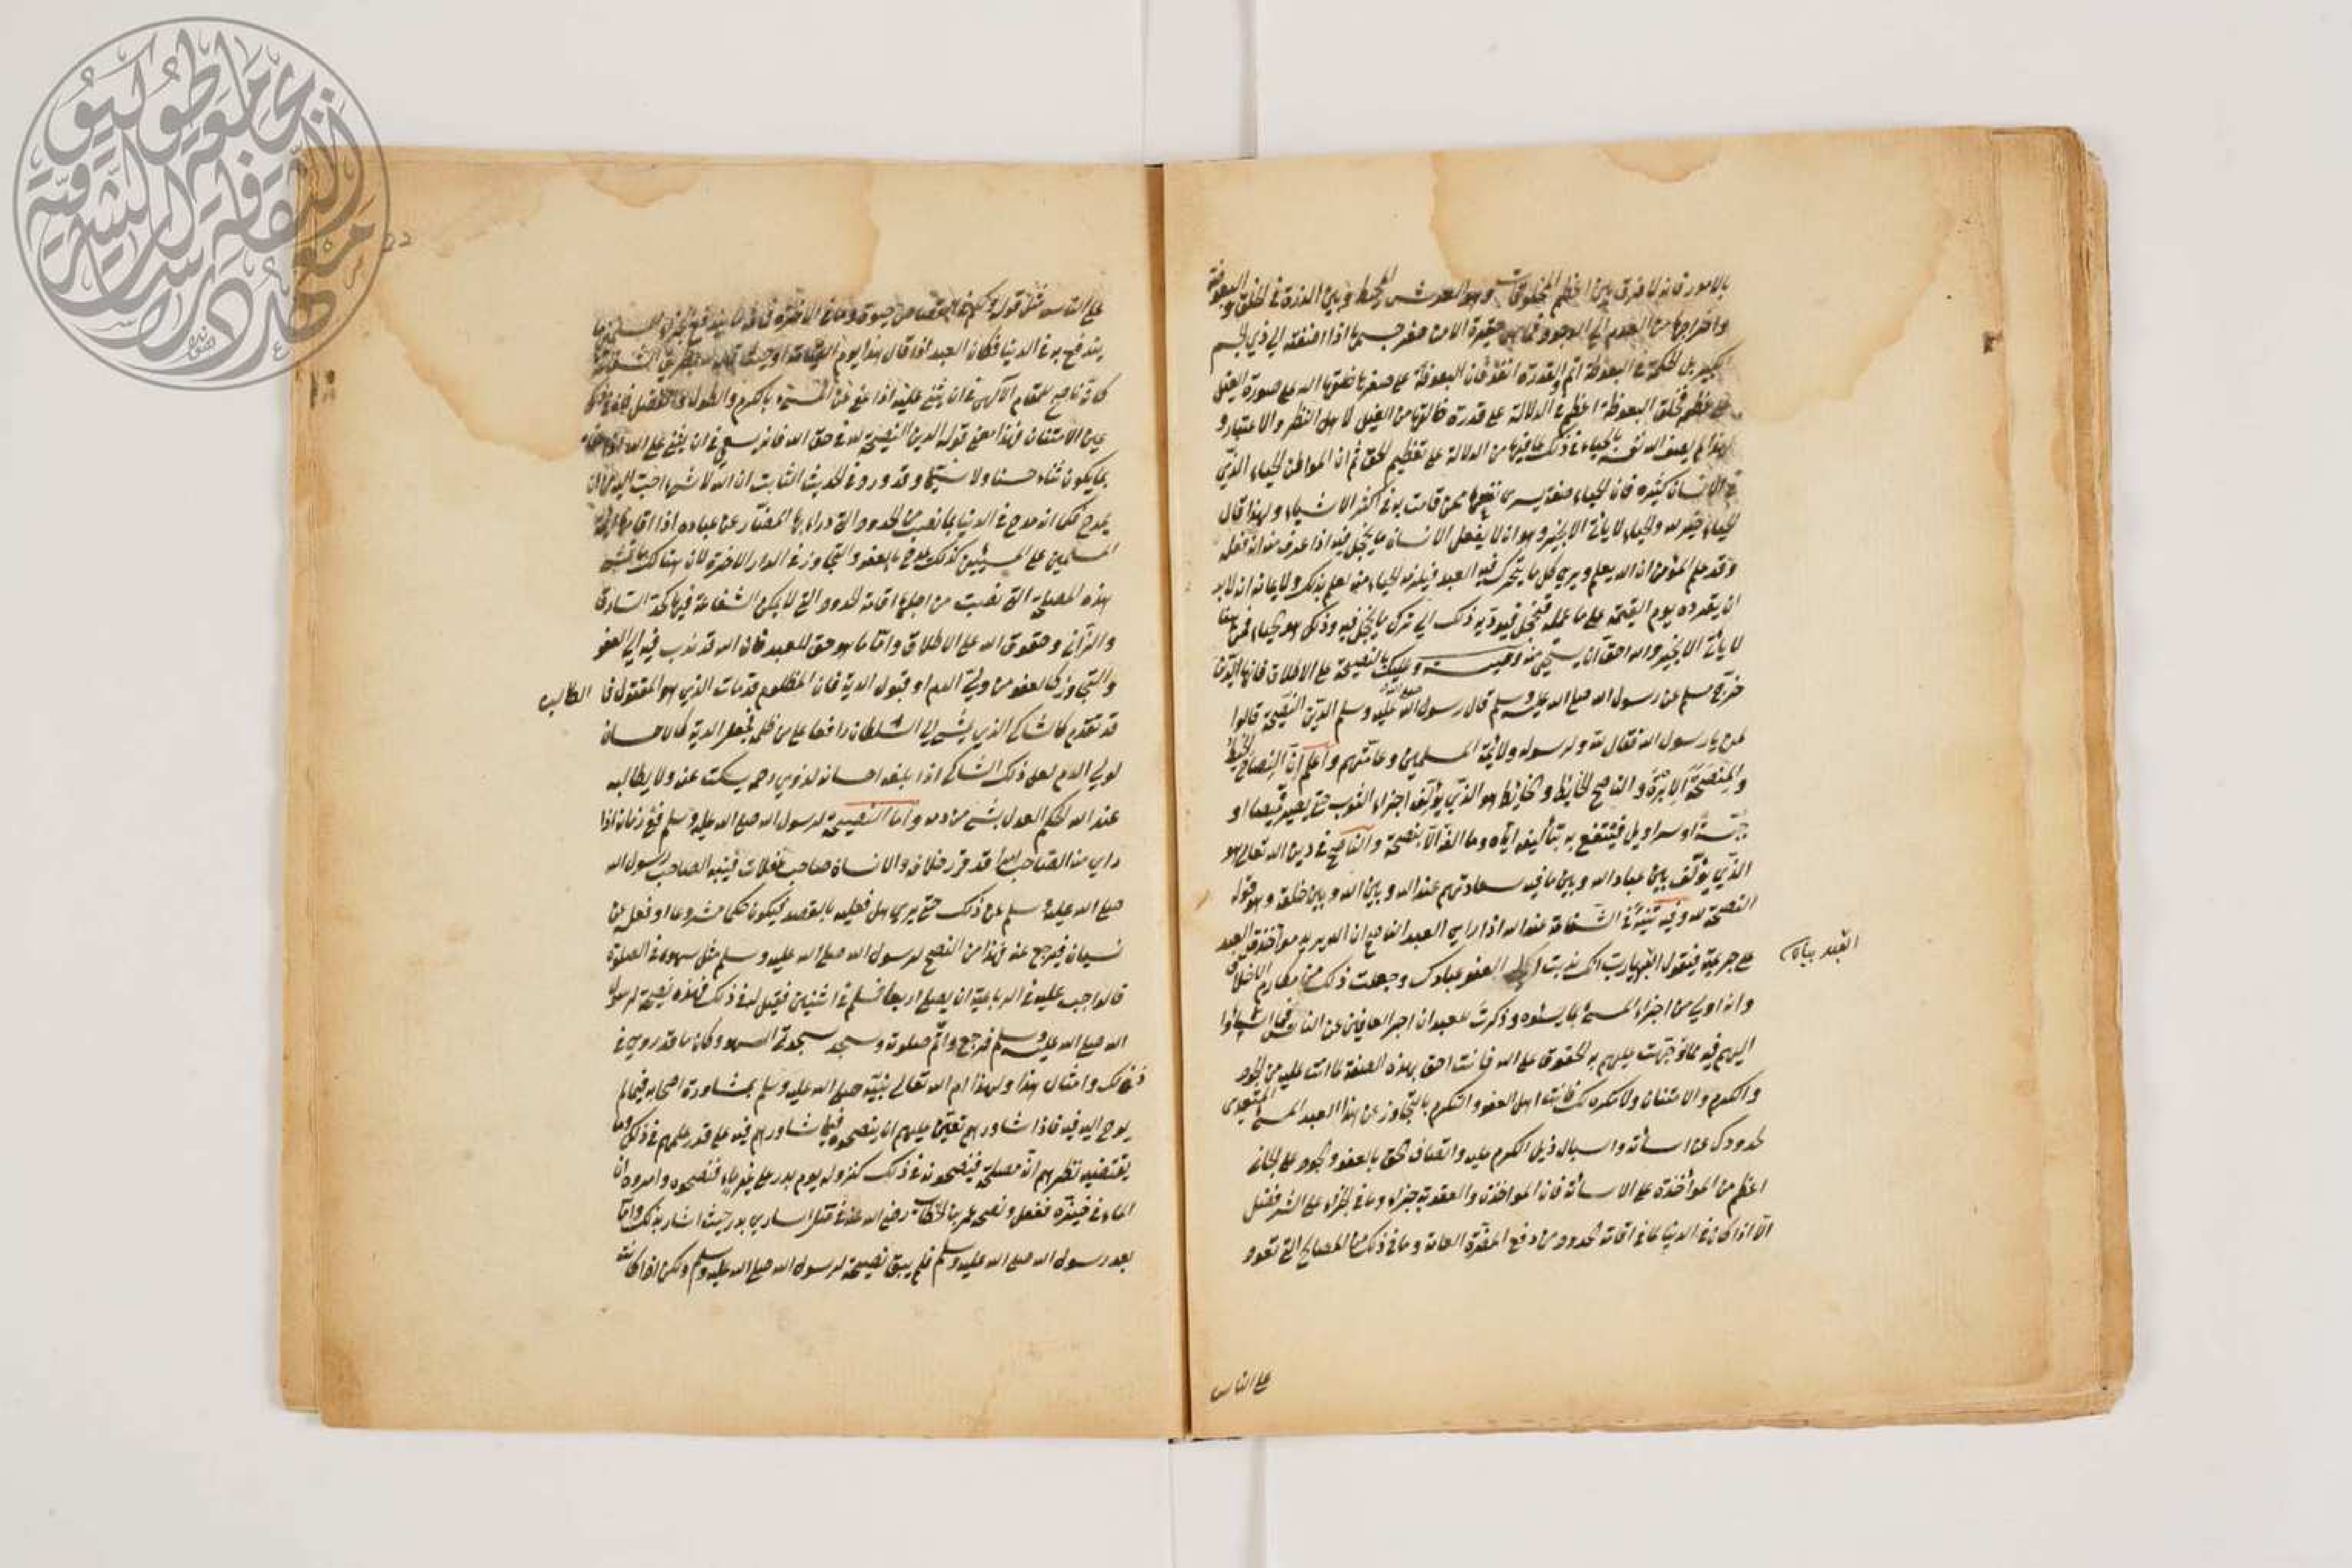 بالامور فانه لا فرق بين اعظم المخلوقات وهو العرش المحيط وبين الذرة في الخلق والبعوضة
واخراجها من العدم الى الوجود فما هي حقيرة الا من صغر جسمها اذا اضفته الى ذي الجسم
الكبير بل الحكمة في البعوضة اتم والقدرة انفذ فان البعوضة على صغرها خلقها الله على صورة الفيل
على عظمه فخلق البعوضة اعظم في الدلالة على قدرة خالقها من الفيل لاهل النظر والاعتبار و
لهذا لم يصف الله نفسه بالحياء في ذلك لما فيها من الدلالة على تعظيم الحق ثم ان المواطن للحياء الذي
في الانسان كثيرة فان الحياء صفة يسرى نفعها ممن قامت به في اكثر الاشياء ولهذا قال
الحياء خير كله والحياء لا يأتي الا بخير وهو ان لا يفعل الانسان ما يخجل فيه اذا عرف منه انه فعله
وقد علم المؤمن ان الله يعلم ويرى كل ما يتحرك فيه العبد فيلزمه الحياء منه لعلمه بذلك ولايمانه انه لا بد
ان يقرره يوم القيمة على ما عمله فيخجل فيؤديه ذلك الى ترك ما يخجل فيه وذلك هو الحياء فمن هنا
لا يأتي الا بخير والله احق ان يستحيى منه وصية وعليك بالنصيحة على الاطلاق فانها الدين
خرج مسلم عن رسول الله صلى الله عليه وسلم قال رسول الله صلى الله عليه وسلم الدين النصيحة قالوا
لمن يا رسول الله فقال لله ولرسوله ولائمة المسلمين وعامتهم واعلم ان النصاح الخيط
والمنصحة الابرة والناصح الخايط والخايط هو الذي يؤلف اجزاء الثوب حتى يصير قميصا او
جبة او سراويل فينتفع به بتأليفه اياه وما الفه الا بنصحه والناصح في دين الله تعالى هو
الذي يؤلف بين عباد الله وبين ما فيه سعادتهم عند الله وبين الله وبين خلقه وهو قوله
النصيحة لله وفيه تنبيه في الشفاعة عند الله اذا راى العبد الناصح ان الله يريد مؤاخذة العبد
على جريمته فيقول لله يا رب انك ندبت الى العفو عبادك وجعلت ذلك من مكارم الاخلاق
العبد بياه
وانه اولى من اجزاء المسئ بما يسئوه وذكرت للعبد ان اجر العافين عن الناس فيما اساؤا
اليهم فيه مما توجهت عليهم به الحقوق على الله فانت احق بهذه الصفة لما انت عليه من الجود
والكرم والامتنان ولا مكره لك فانت اهل العفو والتكرم بالتجاوز عن هذا العبد المسئ المتعدى
لحدودك عن اسائته واسبال ذيل الكرم عليه واتصاف الحق بالعفو والجود على الجاني
اعظم من المؤاخذة على الاساءة فان المؤاخذة والعقوبة جزاء وما في الجزاء على الشر فضل
الا اذا كان في الدنيا لما في اقامة الحدود من دفع المضرة العامة وما في ذلك من المصالح التي تعود
على الناس
22
على الناس مثل قوله ولكم في القصاص حيوة وما في الاخرة
يندفع به في الدنيا فكان العبد اذا قال هذا يوم القيامة
كانه ناصح لمقام الالهي في ان يثنى عليه اذا عفى عن المسئ بالكرم والطول والفضل فانه في
عين الامتنان فهذا معنى قوله الدين النصيحة لله في حق الله فانه يسعى في ان يثنى على الله
بما يكون ثناء حسنا ولا سيما وقد ورد في الحديث الثابت ان الله لا شئ احب اليه من ان
يمدح فكما انه مدح في الدنيا بما نصب من الحدود التي درأ بها المضار عن عباده اذا اقامها ائمة
المسلمين على المسيئين كذلك يمدح بالعفو والتجاوز في الدار الاخرة لان هنالك ما تمشى
هذه المصلحة التي نصبت من اجلها اقامة الحدود التي لا يمكن الشفاعة فيها كحد السارق
والزاني وحقوق الله على الاطلاق واما ما هو حق للعبد فان الله قد ندب فيه الى العفو
والتجاوز كالعفو من ولي الدم او قبول الدية فان المظلوم قد مات الذي هو المقتول فا الطالب
قد تقدم كالشاكى الذي يمشى الى السلطان رافعا على من ظلمه فيجعل الدية كالاحسان
لولي الدم لعل ذلك الشاكى اذا بلغه احسانه لذوي رحمه يسكت عنه ولا يطالبه
عند الله الحكم العدل بشئ من دمه واما النصيحة لرسول الله صلى الله عليه وسلم ففي زمانه اذا
راى منه الصاحب امرا قد قرر خلافه والانسان صاحب غفلات فينبه الصاحب رسول الله
صلى الله عليه وسلم عن ذلك حتى يرى هل فعله بالقصد فيكون حكما مشروعا او فعل عن
نسيان فيرجع عنه فهذا من النصح لرسول الله صلى الله عليه وسلم مثل سهوه في الصلوة
فالواجب عليه في الرباعية ان يصلى اربعا فسلم في اثنين فقيل له في ذلك فهذه نصيحة لرسول
الله صلى الله عليه وسلم فرجع واتم صلوته وسجد سجدتي السهو وكان ما قد روى في
ذلك وامثال هذا ولهذا امر الله تعالى نبيه صلى الله عليه وسلم بمشاورة اصحابه فيما لم
يوح اليه فيه فاذا شاورهم تعين عليهم ان ينصحوه فيما شاورهم فيه على قدر علمهم في ذلك وما
يقتضيه نظرهم انه مصلحة فينصحونه في ذلك كنزوله يوم بدر على غير ماء فنصحوه وامروه ان
الماء في حيزه ففعل ونصحه عمر بن الخطاب رضى الله عنه في قتل اسارى بدر حيث اشار بذلك واما
بعد رسول الله صلى الله عليه وسلم فلم يبق نصيحة لرسول الله صلى الله عليه وسلم ولكن اذا كانت
جامعة طوكيو
معهد دراسات الثقافة الشرقية